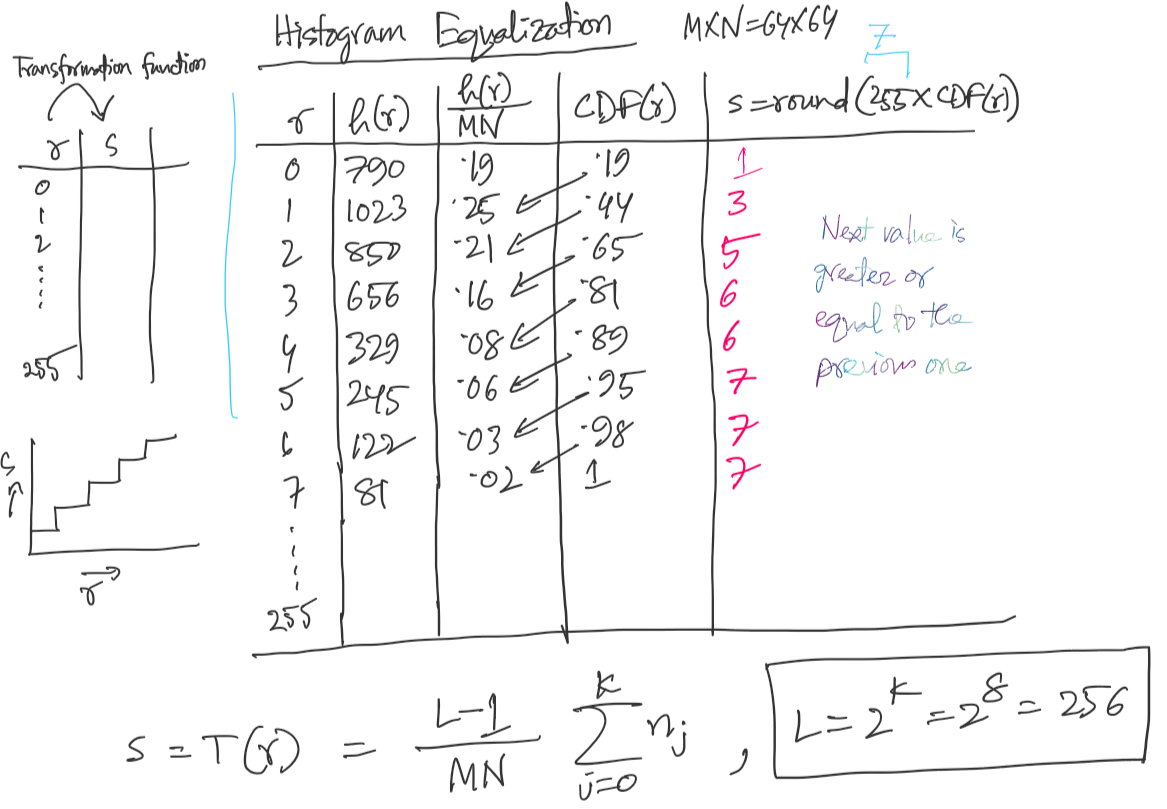 Histogram Equalization M×N=64×64
7
Transformation function
r s
0
1
2
255
s
r
r h(r) h(r)/MN CDF(r) s=round(255×CDF(r))
0 790 .19 .19 1
1 1023 .25 .44 3
2 850 .21 .65 5
3 656 .16 .81 6
4 329 .08 .89 6
5 245 .06 .95 7
6 122 .03 .98 7
7 81 .02 1 7
255
Next value is
greater or
equal to the
previous one
s = T(r) = L-1/MN ∑ k j=0 nj , L=2^k=2^8=256